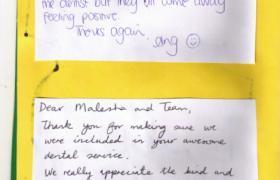 the dentist but they all come away
feeling positive.
Thanks again
Ang ☺
Dear Malesha and Team,
Thank you for making sure we
were included in your awesome
dental service.
We really appreciate the kind and